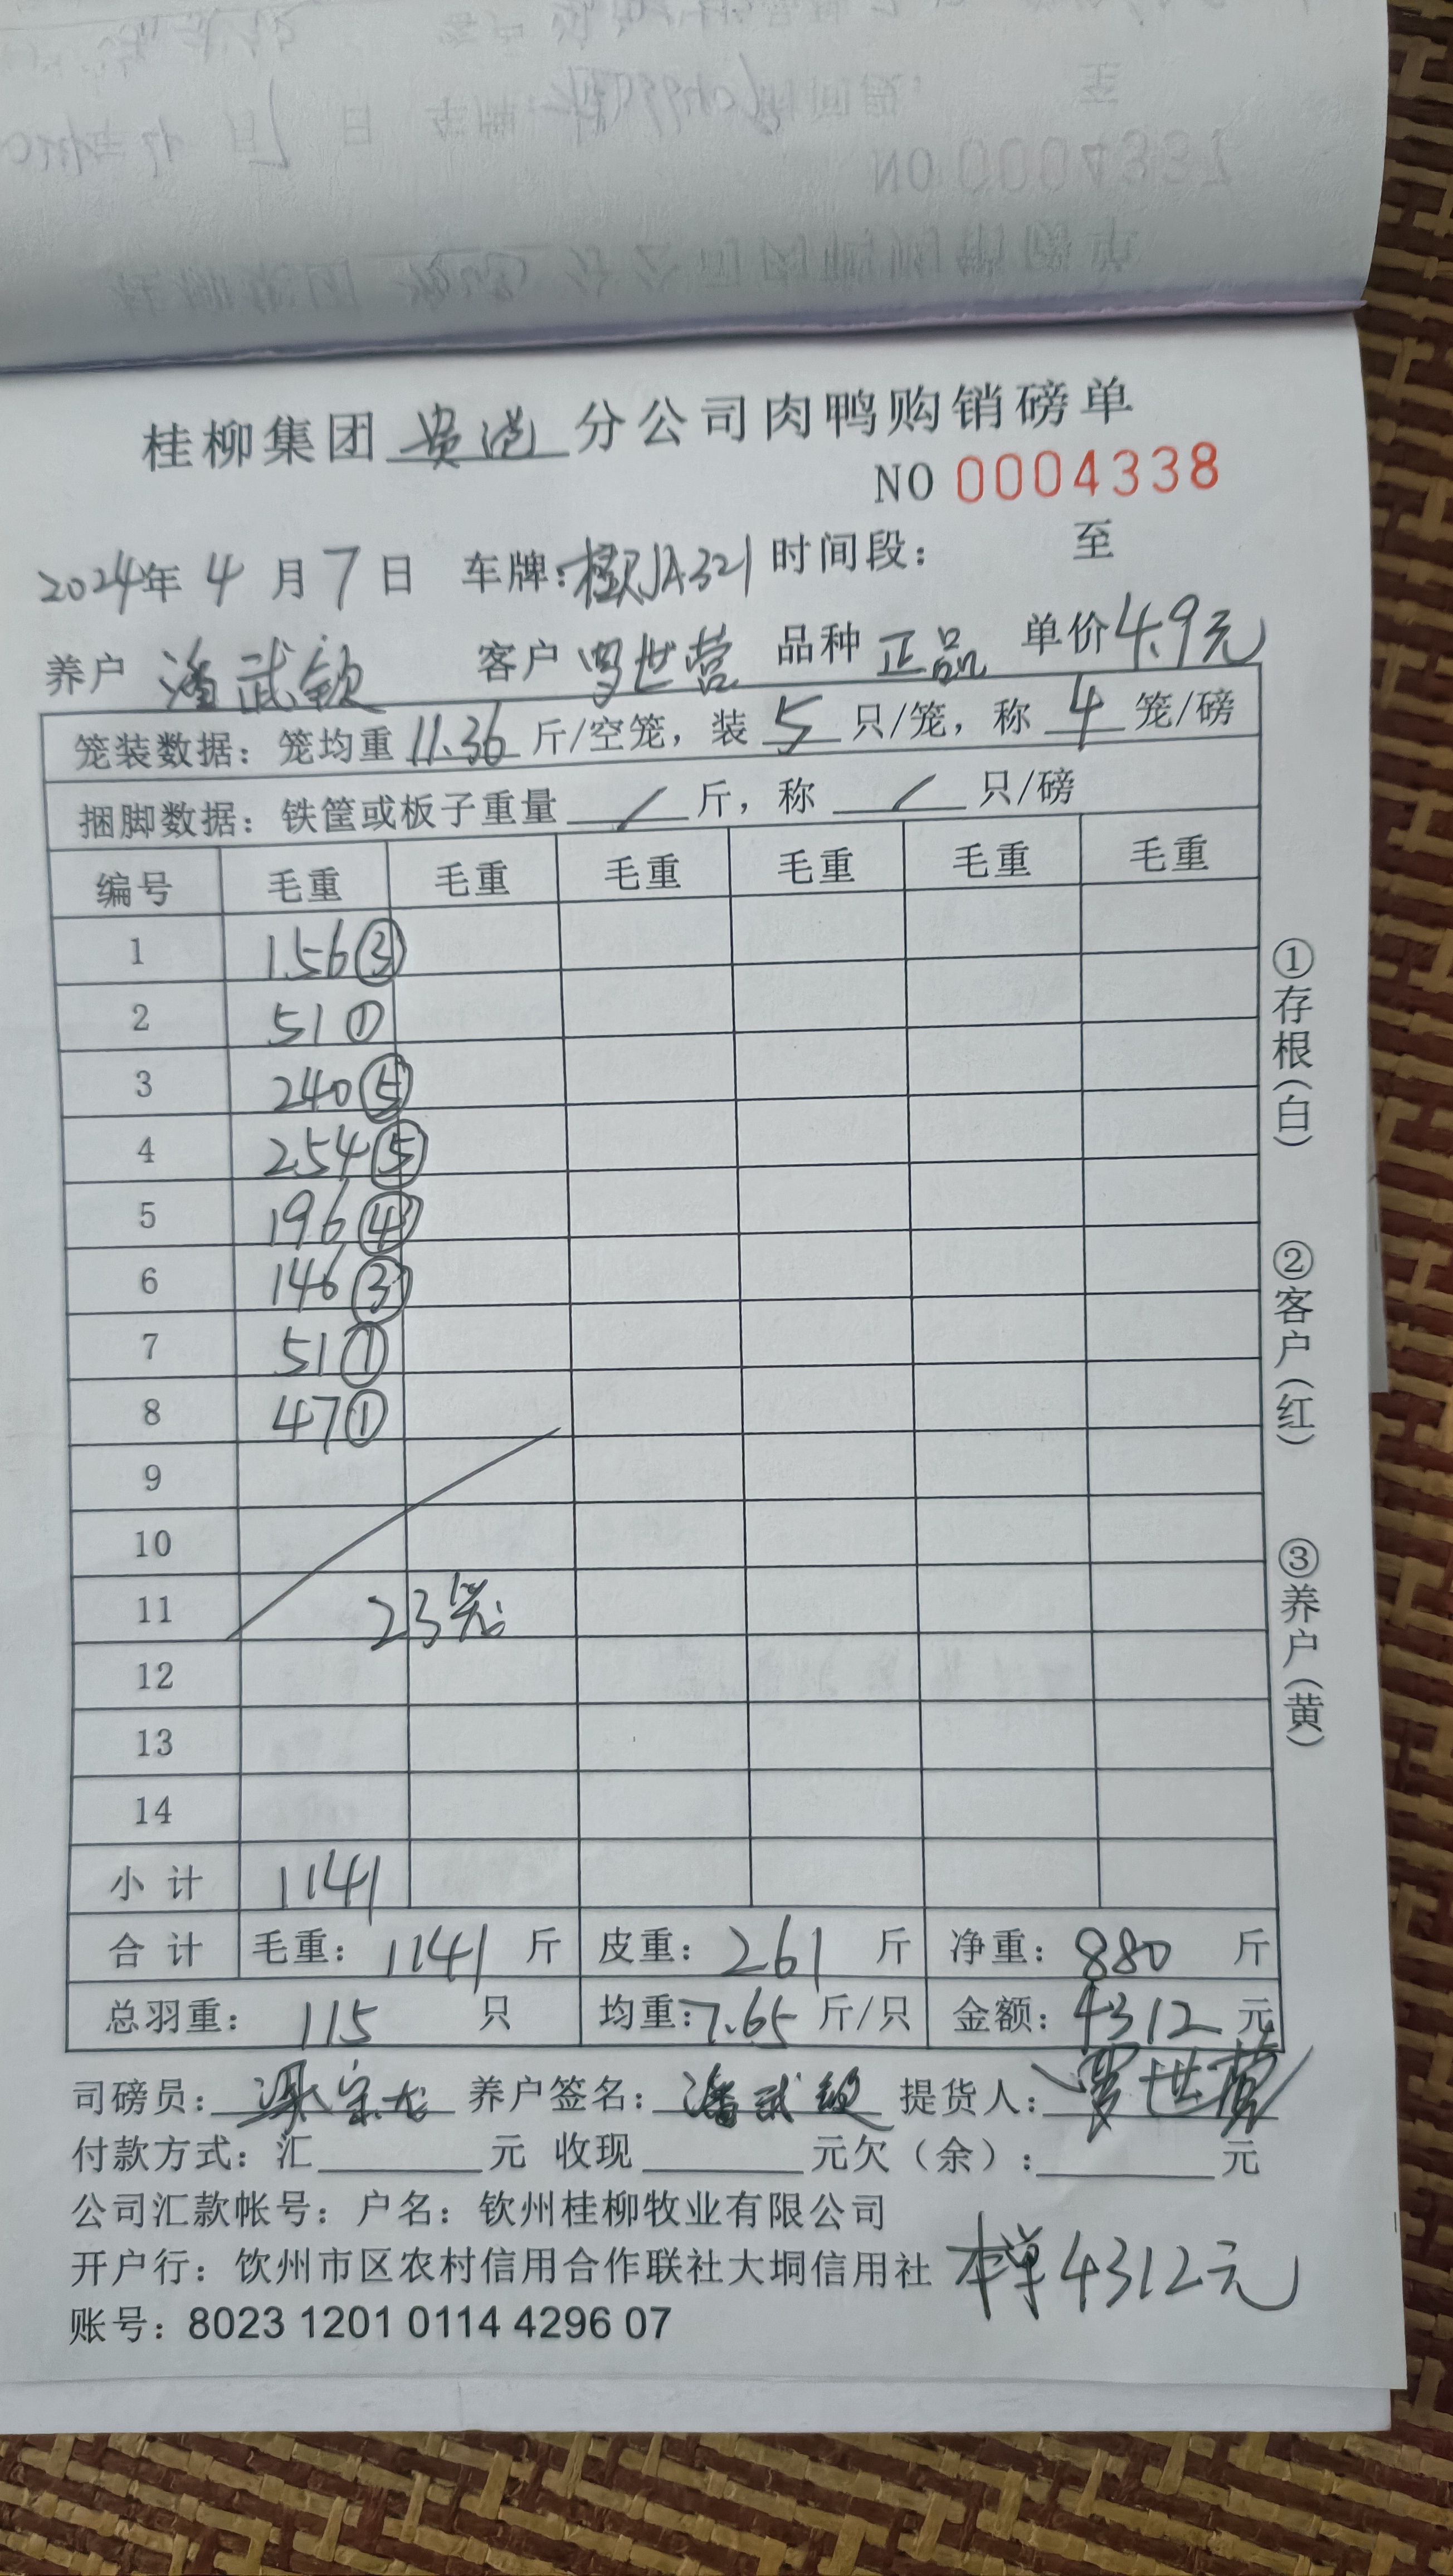 桂柳集团 贵港 分公司肉鸭购销磅单
NO 0004338
2024年 4 月 7 日 车牌:桂RJA321 时间段: 至
养户 潘武钦 客户 罗世营 品种 正品 单价 4.9元
笼装数据:笼均重 11.36 斤/空笼,装 5 只/笼,称 4 笼/磅
捆脚数据:铁筐或板子重量 / 斤,称 / 只/磅
编号 毛重 毛重 毛重 毛重 毛重 毛重
1 156③
2 51①
3 240⑤
4 254⑤
5 196④
6 146③
7 51①
8 47①
9
10
11 23笼
12
13
14
小计 1141
合计 毛重: 1141 斤 皮重: 261 斤 净重: 880 斤
总羽重: 115 只 均重:7.65 斤/只 金额: 4312 元
司磅员: 养户签名: 潘武钦 提货人: 罗世营
付款方式:汇 元 收现 元欠(余): 元
公司汇款帐号:户名:钦州桂柳牧业有限公司
开户行:钦州市区农村信用合作联社大垌信用社 本单4312元
账号:8023 1201 0114 4296 07
①存根(白)
②客户(红)
③养户(黄)